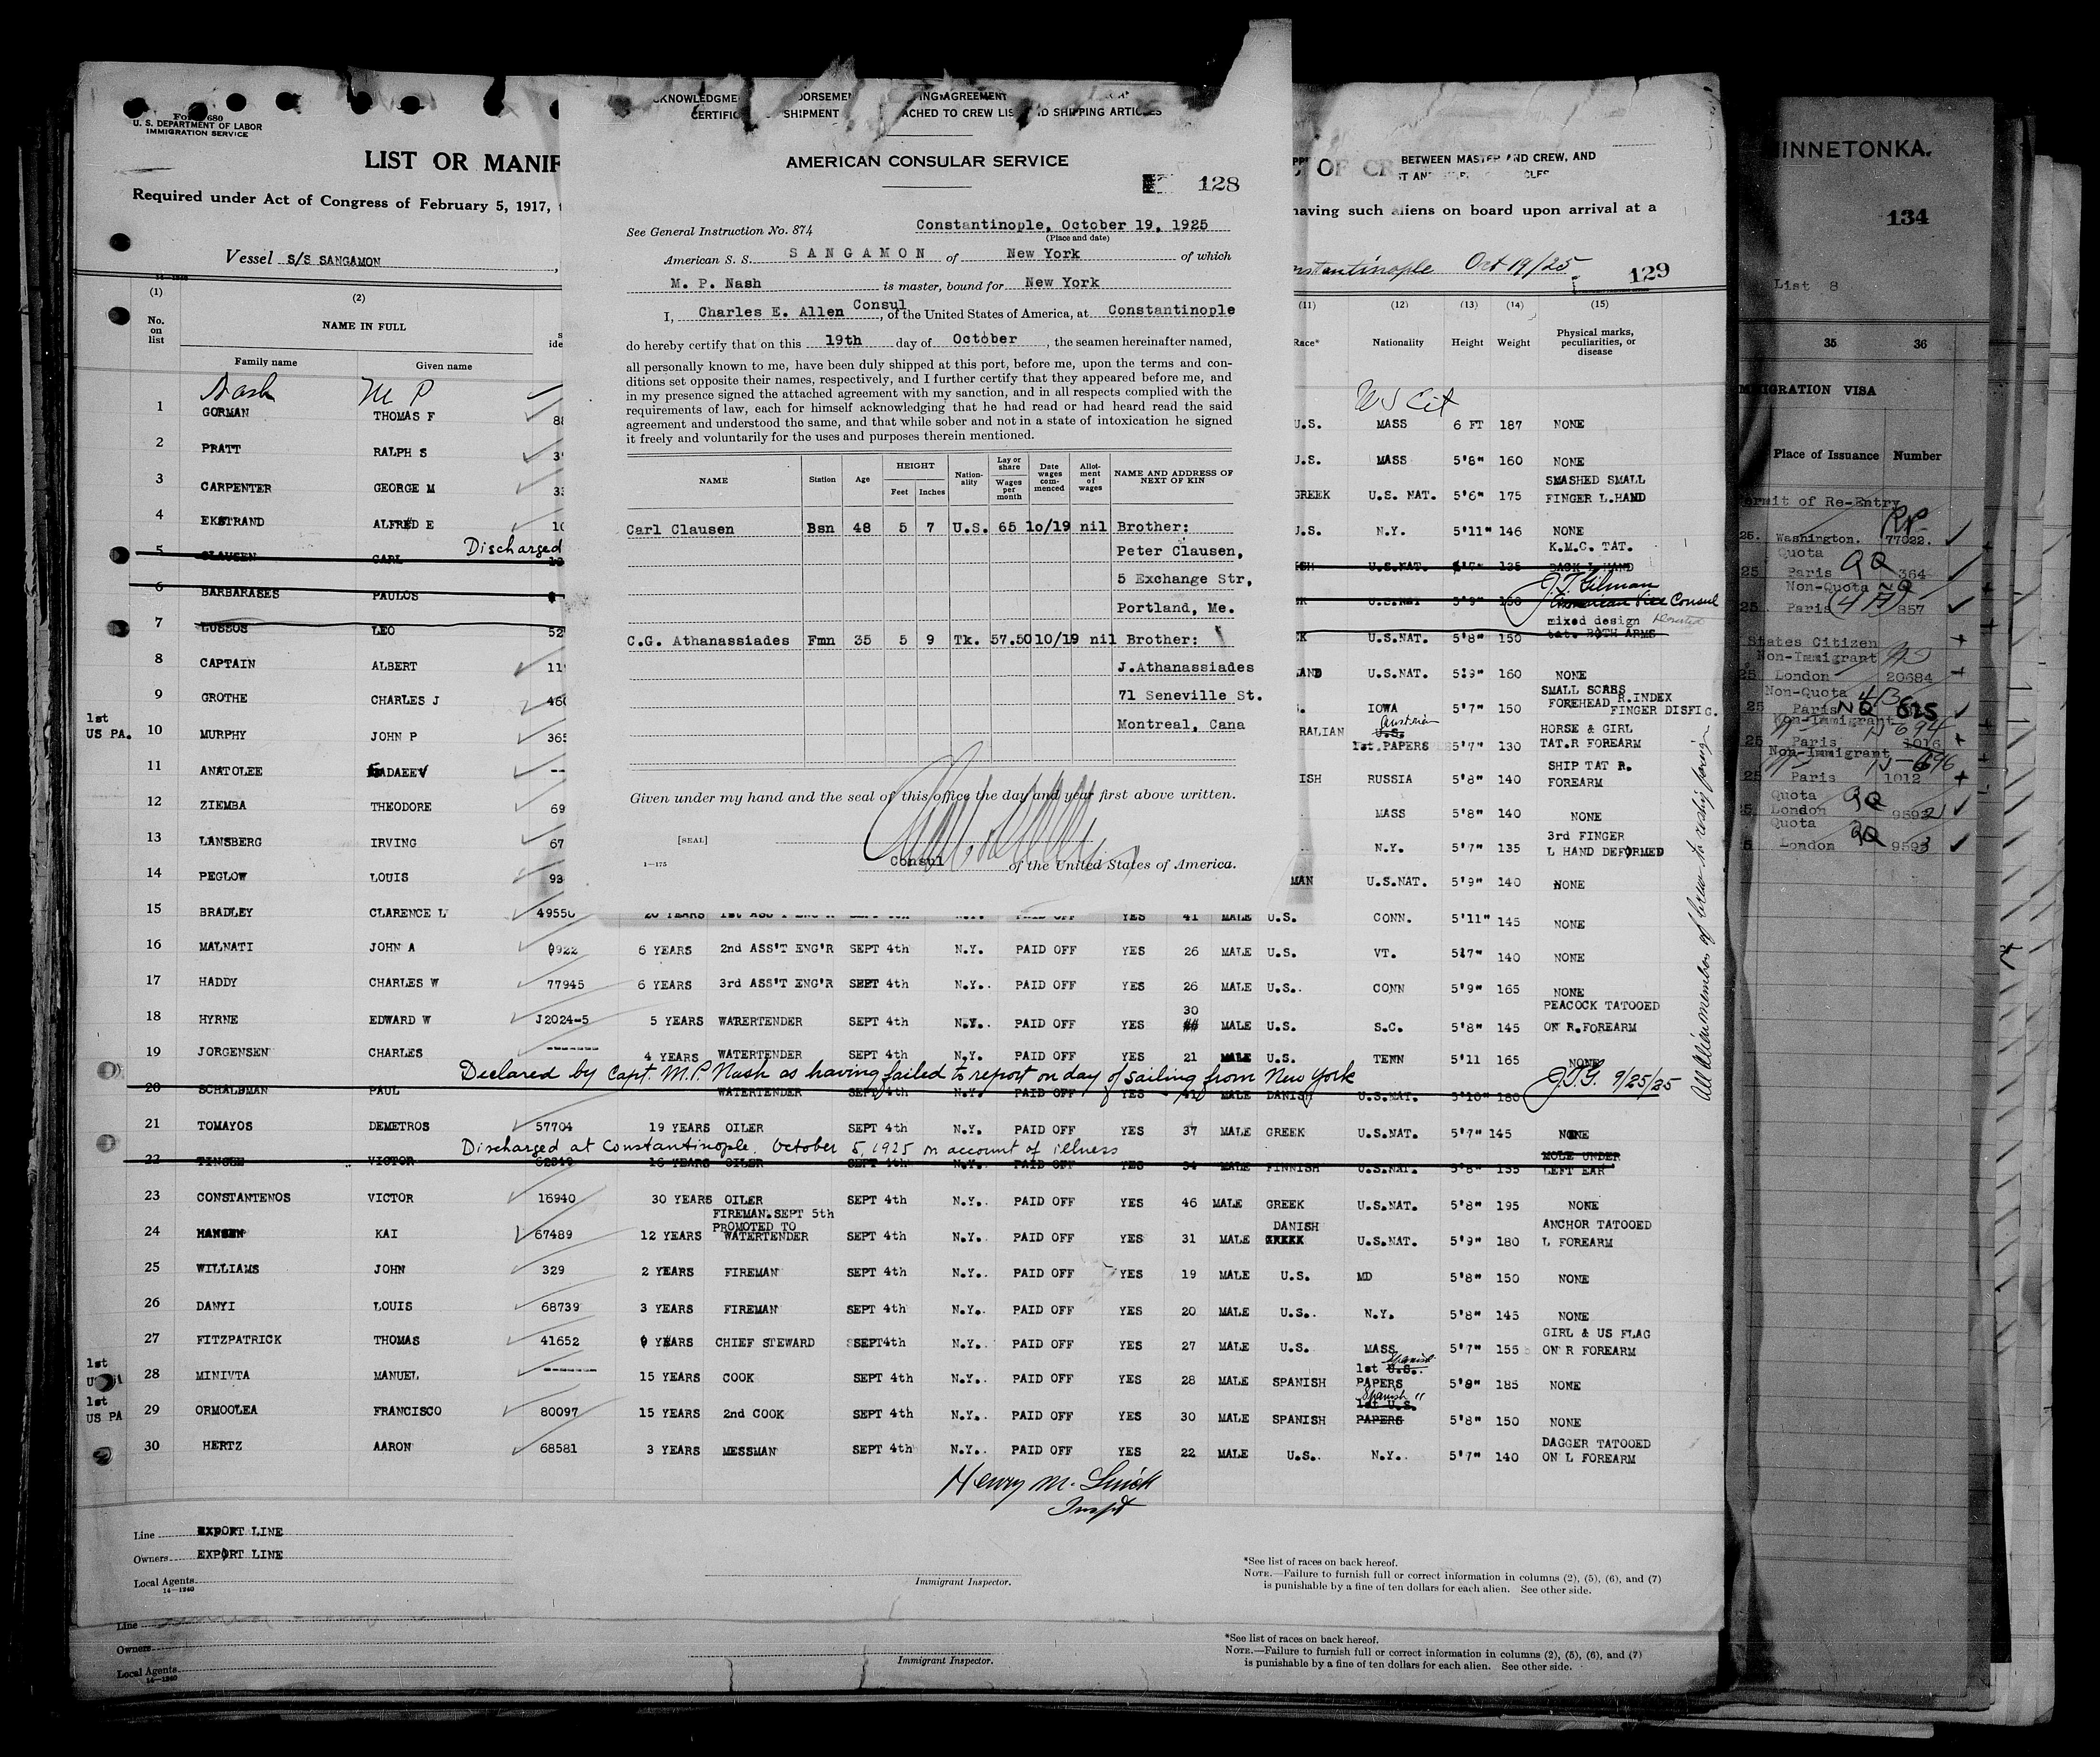 Form 680
U. S. DEPARTMENT OF LABOR
IMMIGRATION SERVICE
LIST OR MANIF
Required under Act of Congress of February 5, 1917,
Vessel S/S SANGAMON
(1) (2)
No. on list
NAME IN FULL
Family name Given name
Nash M P
1 GORMAN THOMAS F
2 PRATT RALPH S
3 CARPENTER GEORGE M
4 EKSTRAND ALFRED E
5 CLAUSEN CARL Discharged
6 BARBARASES PAULOS
7 LEO 52
8 CAPTAIN ALBERT 11
9 GROTHE CHARLES J 460
1st US PA. 10 MURPHY JOHN P 365
11 ANATOLEE
12 ZIEMBA THEODORE 69
13 LANSBERG IRVING 67
14 PEGLOW LOUIS 93
AMERICAN CONSULAR SERVICE
128
See General Instruction No. 874
Constantinople, October 19, 1925
(Place and date)
American S. S. SANGAMON of New York of which
M. P. Nash is master, bound for New York
I, Charles E. Allen Consul, of the United States of America, at Constantinople
do hereby certify that on this 19th day of October, the seamen hereinafter named,
all personally known to me, have been duly shipped at this port, before me, upon the terms and con-
ditions set opposite their names, respectively, and I further certify that they appeared before me, and
in my presence signed the attached agreement with my sanction, and in all respects complied with the
requirements of law, each for himself acknowledging that he had read or had heard read the said
agreement and understood the same, and that while sober and not in a state of intoxication he signed
it freely and voluntarily for the uses and purposes therein mentioned.
NAME Station Age HEIGHT Feet Inches Nation-ality Lay or share Wages per month Date wages com-menced Allot-ment of wages NAME AND ADDRESS OF NEXT OF KIN
Carl Clausen Bsn 48 5 7 U.S. 65 10/19 nil Brother:
Peter Clausen,
5 Exchange Str,
Portland, Me.
C.G. Athanassiades Fmn 35 5 9 Tk. 57.50 10/19 nil Brother:
J.Athanassiades
71 Seneville St.
Montreal, Cana
Given under my hand and the seal of this office the day and year first above written.
[SEAL]
1—175
Consul of the United States of America.
BETWEEN MASTER AND CREW, AND
having such aliens on board upon arrival at a
Constantinople Oct 19/25 129
(11) (12) (13) (14) (15)
Race* Nationality Height Weight Physical marks, peculiarities, or disease
US Cit
U.S. MASS 6 FT 187 NONE
U.S. MASS 5'8" 160 NONE
GREEK U.S. NAT. 5'6" 175 SMASHED SMALL FINGER L.HAND
U.S. N.Y. 5'11" 146 NONE
U.S.NAT. 135 K.M.C. TAT. BACK L HAND
U.S.NAT 5'9" J.T. Gilman American Vice Consul
U.S.NAT. 5'8" 150 mixed design tat. BOTH ARMS
U.S.NAT. 5'9" 160 NONE
IOWA 5'7" 150 SMALL SCARS FOREHEAD R.INDEX FINGER DISFIG.
RALIAN Austrian U.S. 1st.PAPERS 5'7" 130 HORSE & GIRL TAT.R FOREARM
ISH RUSSIA 5'8" 140 SHIP TAT R. FOREARM
MASS 5'8" 140 NONE
N.Y. 5'7" 135 3rd FINGER L HAND DEFORMED
MAN U.S.NAT. 5'9" 140 NONE
15 BRADLEY CLARENCE L 49550 20 YEARS 1st ASS'T ENG'R SEPT 4th N.Y. PAID OFF YES 41 MALE U.S. CONN. 5'11" 145 NONE
16 MALNATI JOHN A 9922 6 YEARS 2nd ASS'T ENG'R SEPT 4th N.Y. PAID OFF YES 26 MALE U.S. VT. 5'7" 140 NONE
17 HADDY CHARLES W 77945 6 YEARS 3rd ASS'T ENG'R SEPT 4th N.Y. PAID OFF YES 26 MALE U.S. CONN 5'9" 165 NONE
18 HYRNE EDWARD W J2024-5 5 YEARS WATERTENDER SEPT 4th N.Y. PAID OFF YES 30 MALE U.S. S.C. 5'8" 145 PEACOCK TATOOED ON R.FOREARM
19 JORGENSEN CHARLES ------ 4 YEARS WATERTENDER SEPT 4th N.Y. PAID OFF YES 21 MALE U.S. TENN 5'11 165 NONE
Declared by Capt. M.P. Nash as having failed to report on day of sailing from New York J.T.G. 9/25/25
20 SCHALBMAN PAUL WATERTENDER SEPT 4th N.Y. PAID OFF YES 41 MALE DANISH U.S.NAT. 5'10" 180
21 TOMAYOS DEMETROS 57704 19 YEARS OILER SEPT 4th N.Y. PAID OFF YES 37 MALE GREEK U.S.NAT. 5'7" 145 NONE
Discharged at Constantinople. October 5, 1925 on account of illness
22 VICTOR 16 YEARS OILER SEPT 4th N.Y. PAID OFF YES 34 MALE FINNISH U.S.NAT. 5'8" 155 MOLE UNDER LEFT EAR
23 CONSTANTENOS VICTOR 16940 30 YEARS OILER SEPT 4th N.Y. PAID OFF YES 46 MALE GREEK U.S.NAT. 5'8" 195 NONE
24 HANSEN KAI 67489 12 YEARS FIREMAN.SEPT 5th PROMOTED TO WATERTENDER SEPT 4th N.Y. PAID OFF YES 31 MALE DANISH GREEK U.S.NAT. 5'9" 180 ANCHOR TATOOED L FOREARM
25 WILLIAMS JOHN 329 2 YEARS FIREMAN SEPT 4th N.Y. PAID OFF YES 19 MALE U.S. MD 5'8" 150 NONE
26 DANYI LOUIS 68739 3 YEARS FIREMAN SEPT 4th N.Y. PAID OFF YES 20 MALE U.S. N.Y. 5'8" 145 NONE
27 FITZPATRICK THOMAS 41652 YEARS CHIEF STEWARD SEPT4th N.Y. PAID OFF YES 27 MALE U.S. MASS 5'7" 155 GIRL & US FLAG ON R FOREARM
1st 28 MINIVTA MANUEL ------ 15 YEARS COOK SEPT 4th N.Y. PAID OFF YES 28 MALE SPANISH Spanish 1st U.S. PAPERS 185 NONE
1st US PA 29 ORMOOLEA FRANCISCO 80097 15 YEARS 2nd COOK SEPT 4th N.Y. PAID OFF YES 30 MALE SPANISH Spanish " 1st U.S. PAPERS 5'8" 150 NONE
30 HERTZ AARON 68581 3 YEARS MESSMAN SEPT 4th N.Y. PAID OFF YES 22 MALE U.S. N.Y. 5'7" 140 DAGGER TATOOED ON L FOREARM
Line EXPORT LINE
Owners EXPORT LINE
Local Agents
14—1240
Immigrant Inspector.
*See list of races on back hereof.
NOTE.—Failure to furnish full or correct information in columns (2), (5), (6), and (7)
is punishable by a fine of ten dollars for each alien. See other side.
Line
Owners
Local Agents
14—1240
Immigrant Inspector.
*See list of races on back hereof.
NOTE.—Failure to furnish full or correct information in columns (2), (5), (6), and (7)
is punishable by a fine of ten dollars for each alien. See other side.
INNETONKA.
134
List 8
35 36
MMIGRATION VISA
Place of Issuance Number
ermit of Re-Entry
25. Washington. 77022.
Quota
25 Paris QQ 364
Non-Quota NQ
25 Paris 857
States Citizen
Non-Immigrant
25 London 20684
Non-Quota
25 Paris NQ
Non-Immigrant
25 Paris 1016
Non-Immigrant
25 Paris 1012
Quota
London QQ 9592
Quota
London QQ 9593